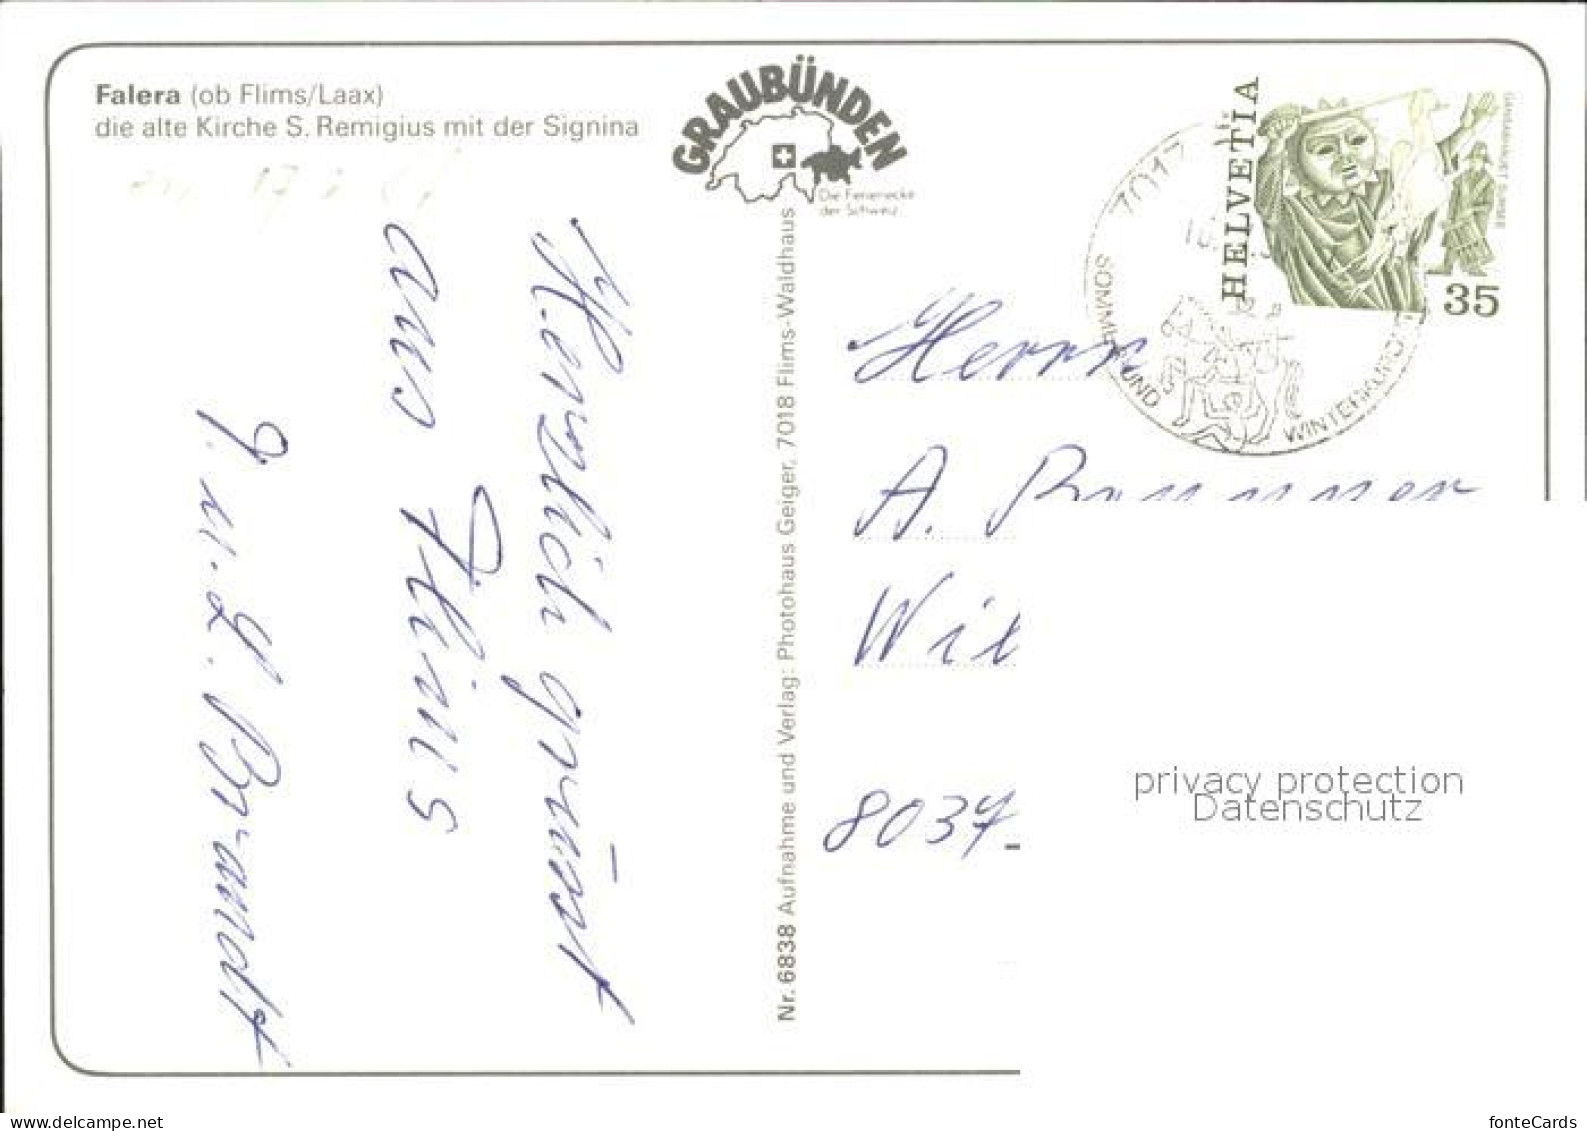 Falera (ob Flims/Laax)
die alte Kirche S. Remigius mit der Signina
GRAUBÜNDEN
Die Ferienecke
der Schweiz
Herzlich grüsst
aus Flims
J. u. L. Brandt
Nr. 6838 Aufnahme und Verlag: Photohaus Geiger, 7018 Flims-Waldhaus
HELVETIA
GANSABHAUET SURSEE
35
7017
SOMMER UND
WINTERKURORT
Herrn
A.
8037
privacy protection
Datenschutz
delcampe.net
fonteCards